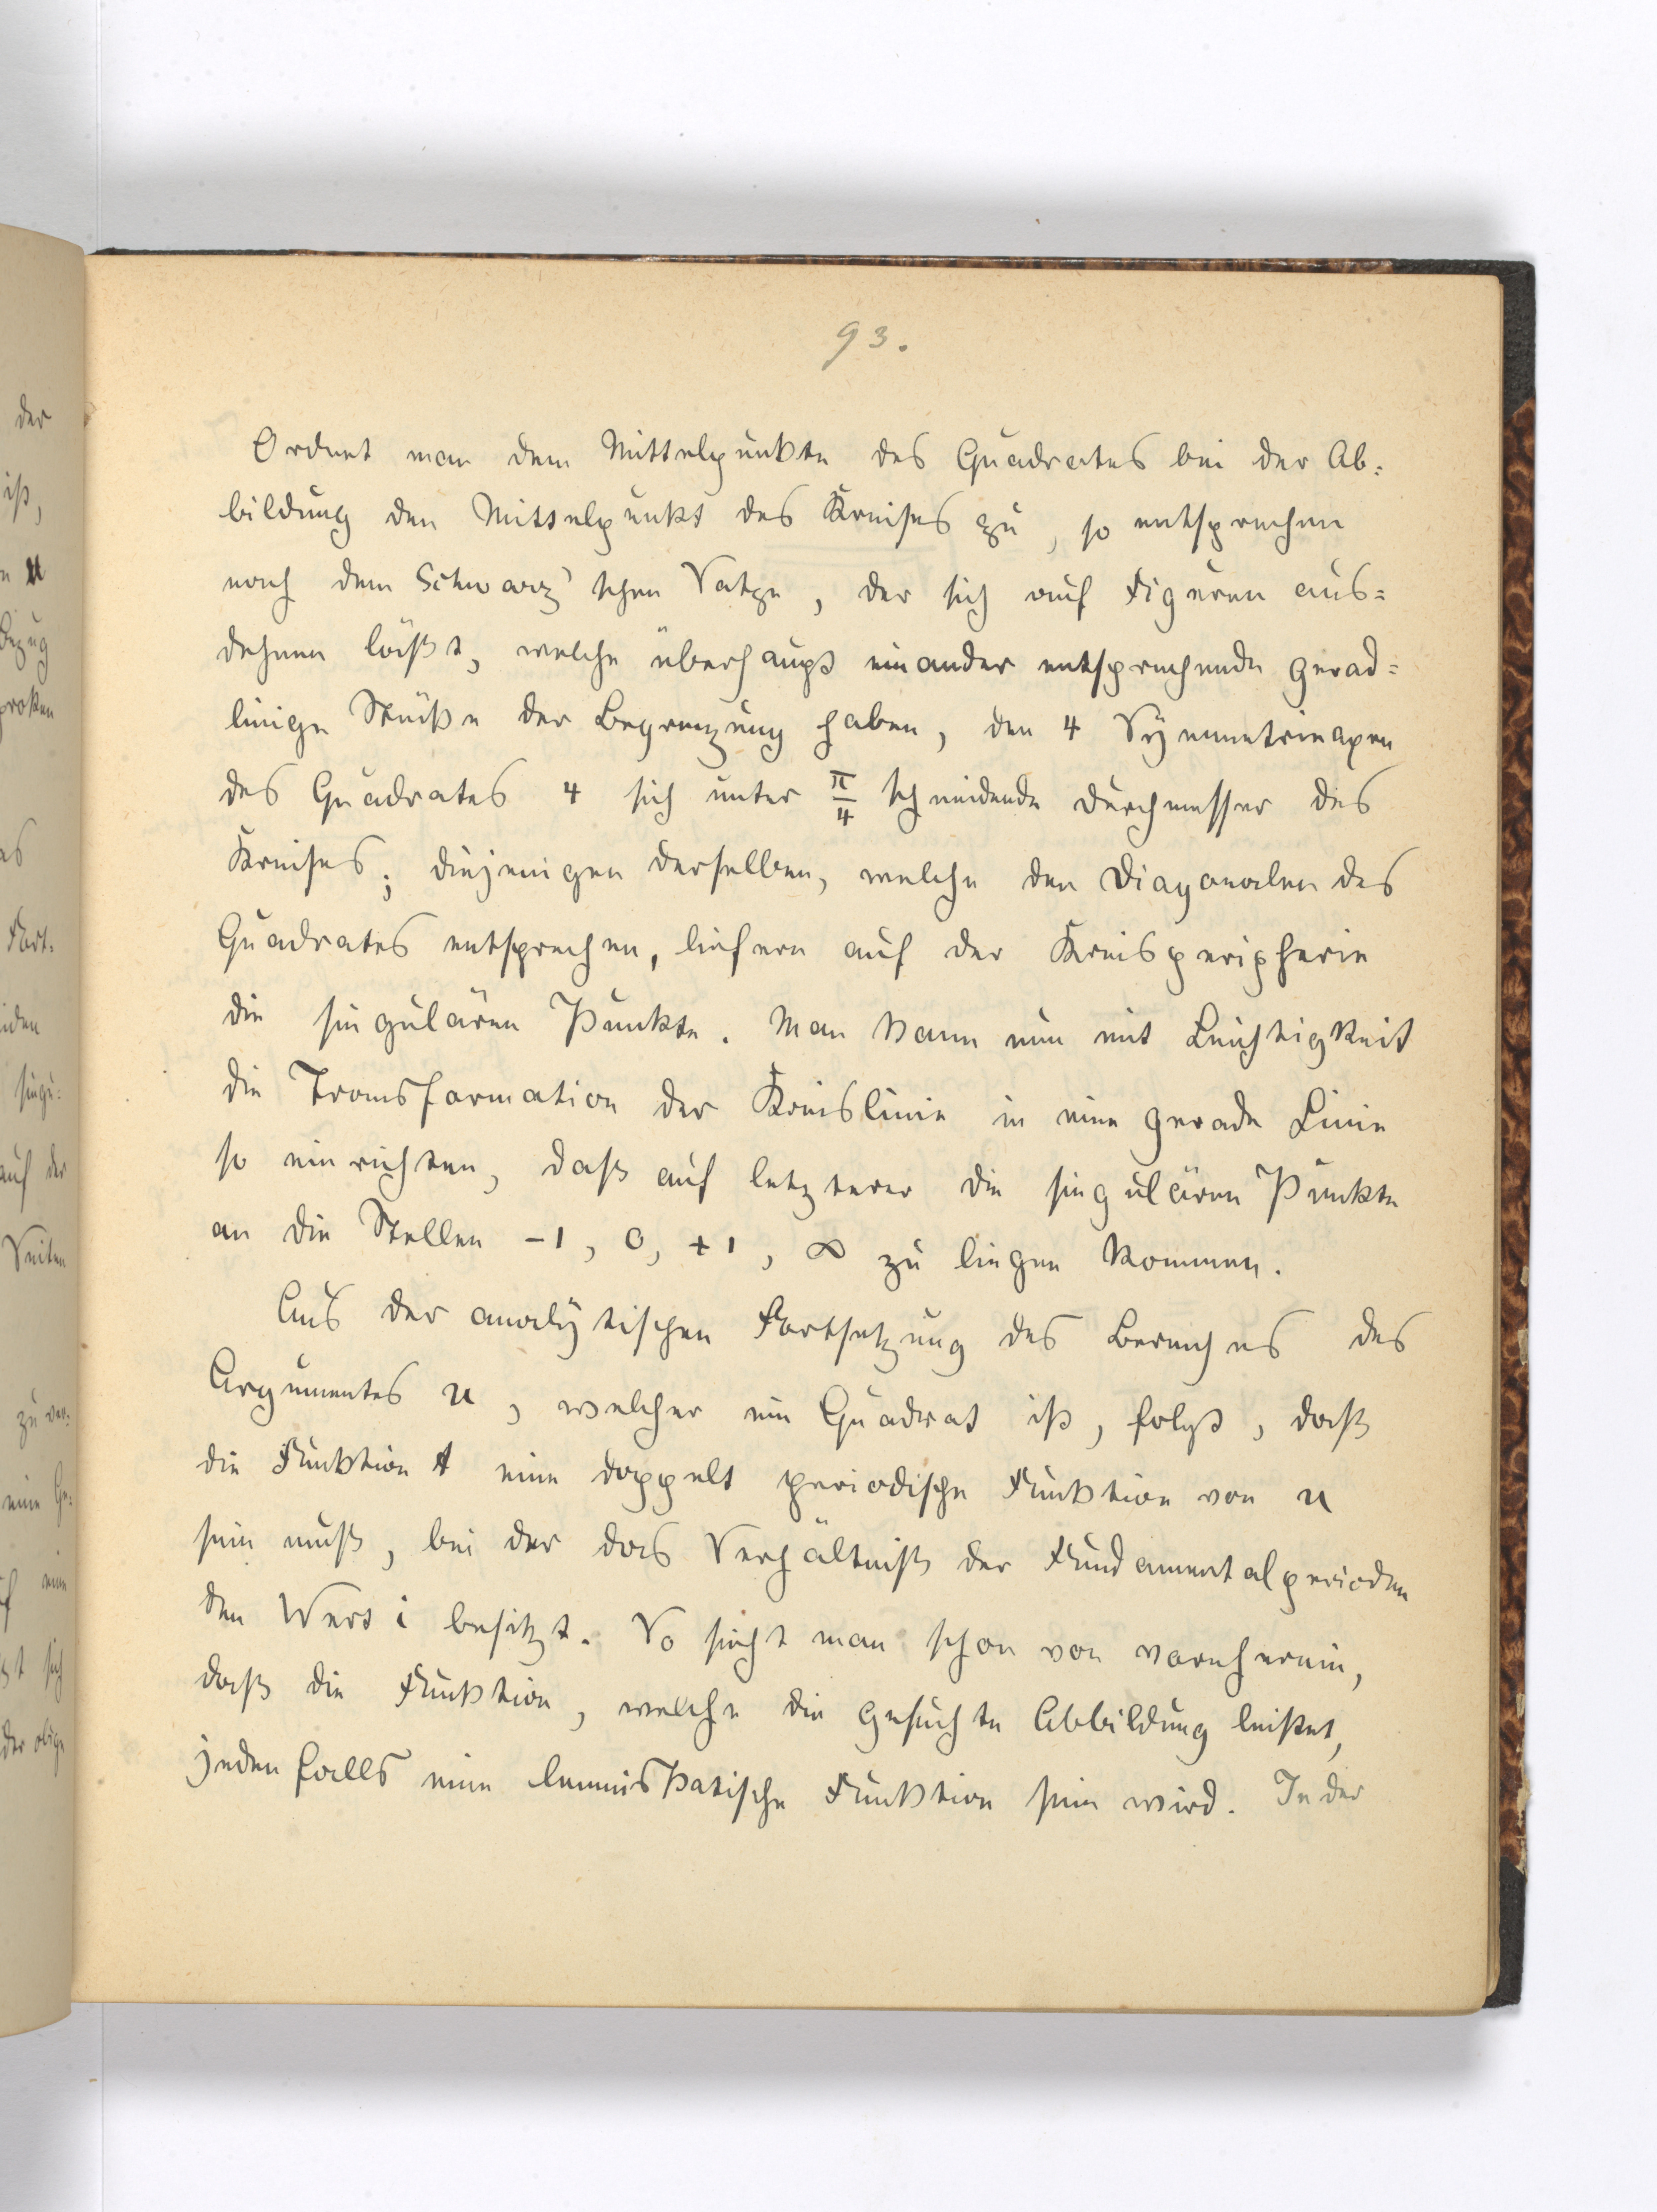 93.
Ordnet man dem Mittelpunkte des Quadrates bei der Ab=
bildung den Mittelpunkt des Kreises zu, so entsprechen
nach dem Schwarz'schen Satze, der sich auf Figuren aus=
dehnen läßt, welche überhaupt einander entsprechende gerad=
linige Stücke der Begrenzung haben, den 4 Symmetrieaxen
des Quadrates 4 sich unter π/4 schneidende Durchmesser des
Kreises; diejenigen derselben, welche den Diagonalen des
Quadrates entsprechen, liefern auf der Kreisperipherie
die singulären Punkte. Man kann nun mit Leichtigkeit
die Transformation der Kreislinie in eine gerade Linie
so einrichten, daß auf letzterer die singulären Punkte
an die Stellen -1, 0, +1, ∞ zu liegen kommen.
Aus der analytischen Fortsetzung des Bereiches des
Argumentes u, welcher ein Quadrat ist, folgt, daß
die Funktion t eine doppelt periodische Funktion von u
sein muß, bei der das Verhältniß der Fundamentalperioden
den Wert i besitzt. So sieht man schon von vorneherein,
daß die Funktion, welche die gesuchte Abbildung leistet,
jedenfalls eine lemniskatische Funktion sein wird. In der
der
ist,
u
Bezug
Fort=
singu=
auf der
Seiten
zu ver=
eine Ge=
eine
sich
der obige